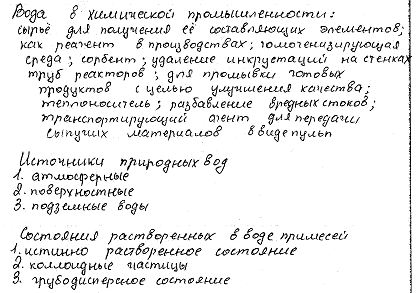 Вода в химической промышленности:
сырьё для получения её составляющих элементов;
как реагент в производствах; гомогенизирующая
среда; сорбент; удаление инкрустаций на стенках
труб реакторов; для промывки готовых
продуктов с целью улучшения качества;
теплоноситель; разбавление вредных стоков;
транспортирующий агент для передачи
сыпучих материалов в виде пульп
Источники природных вод
1. атмосферные
2. поверхностные
3. подземные воды
Состояния растворенных в воде примесей
1. истинно растворенное состояние
2. коллоидные частицы
3. грубодисперсное состояние